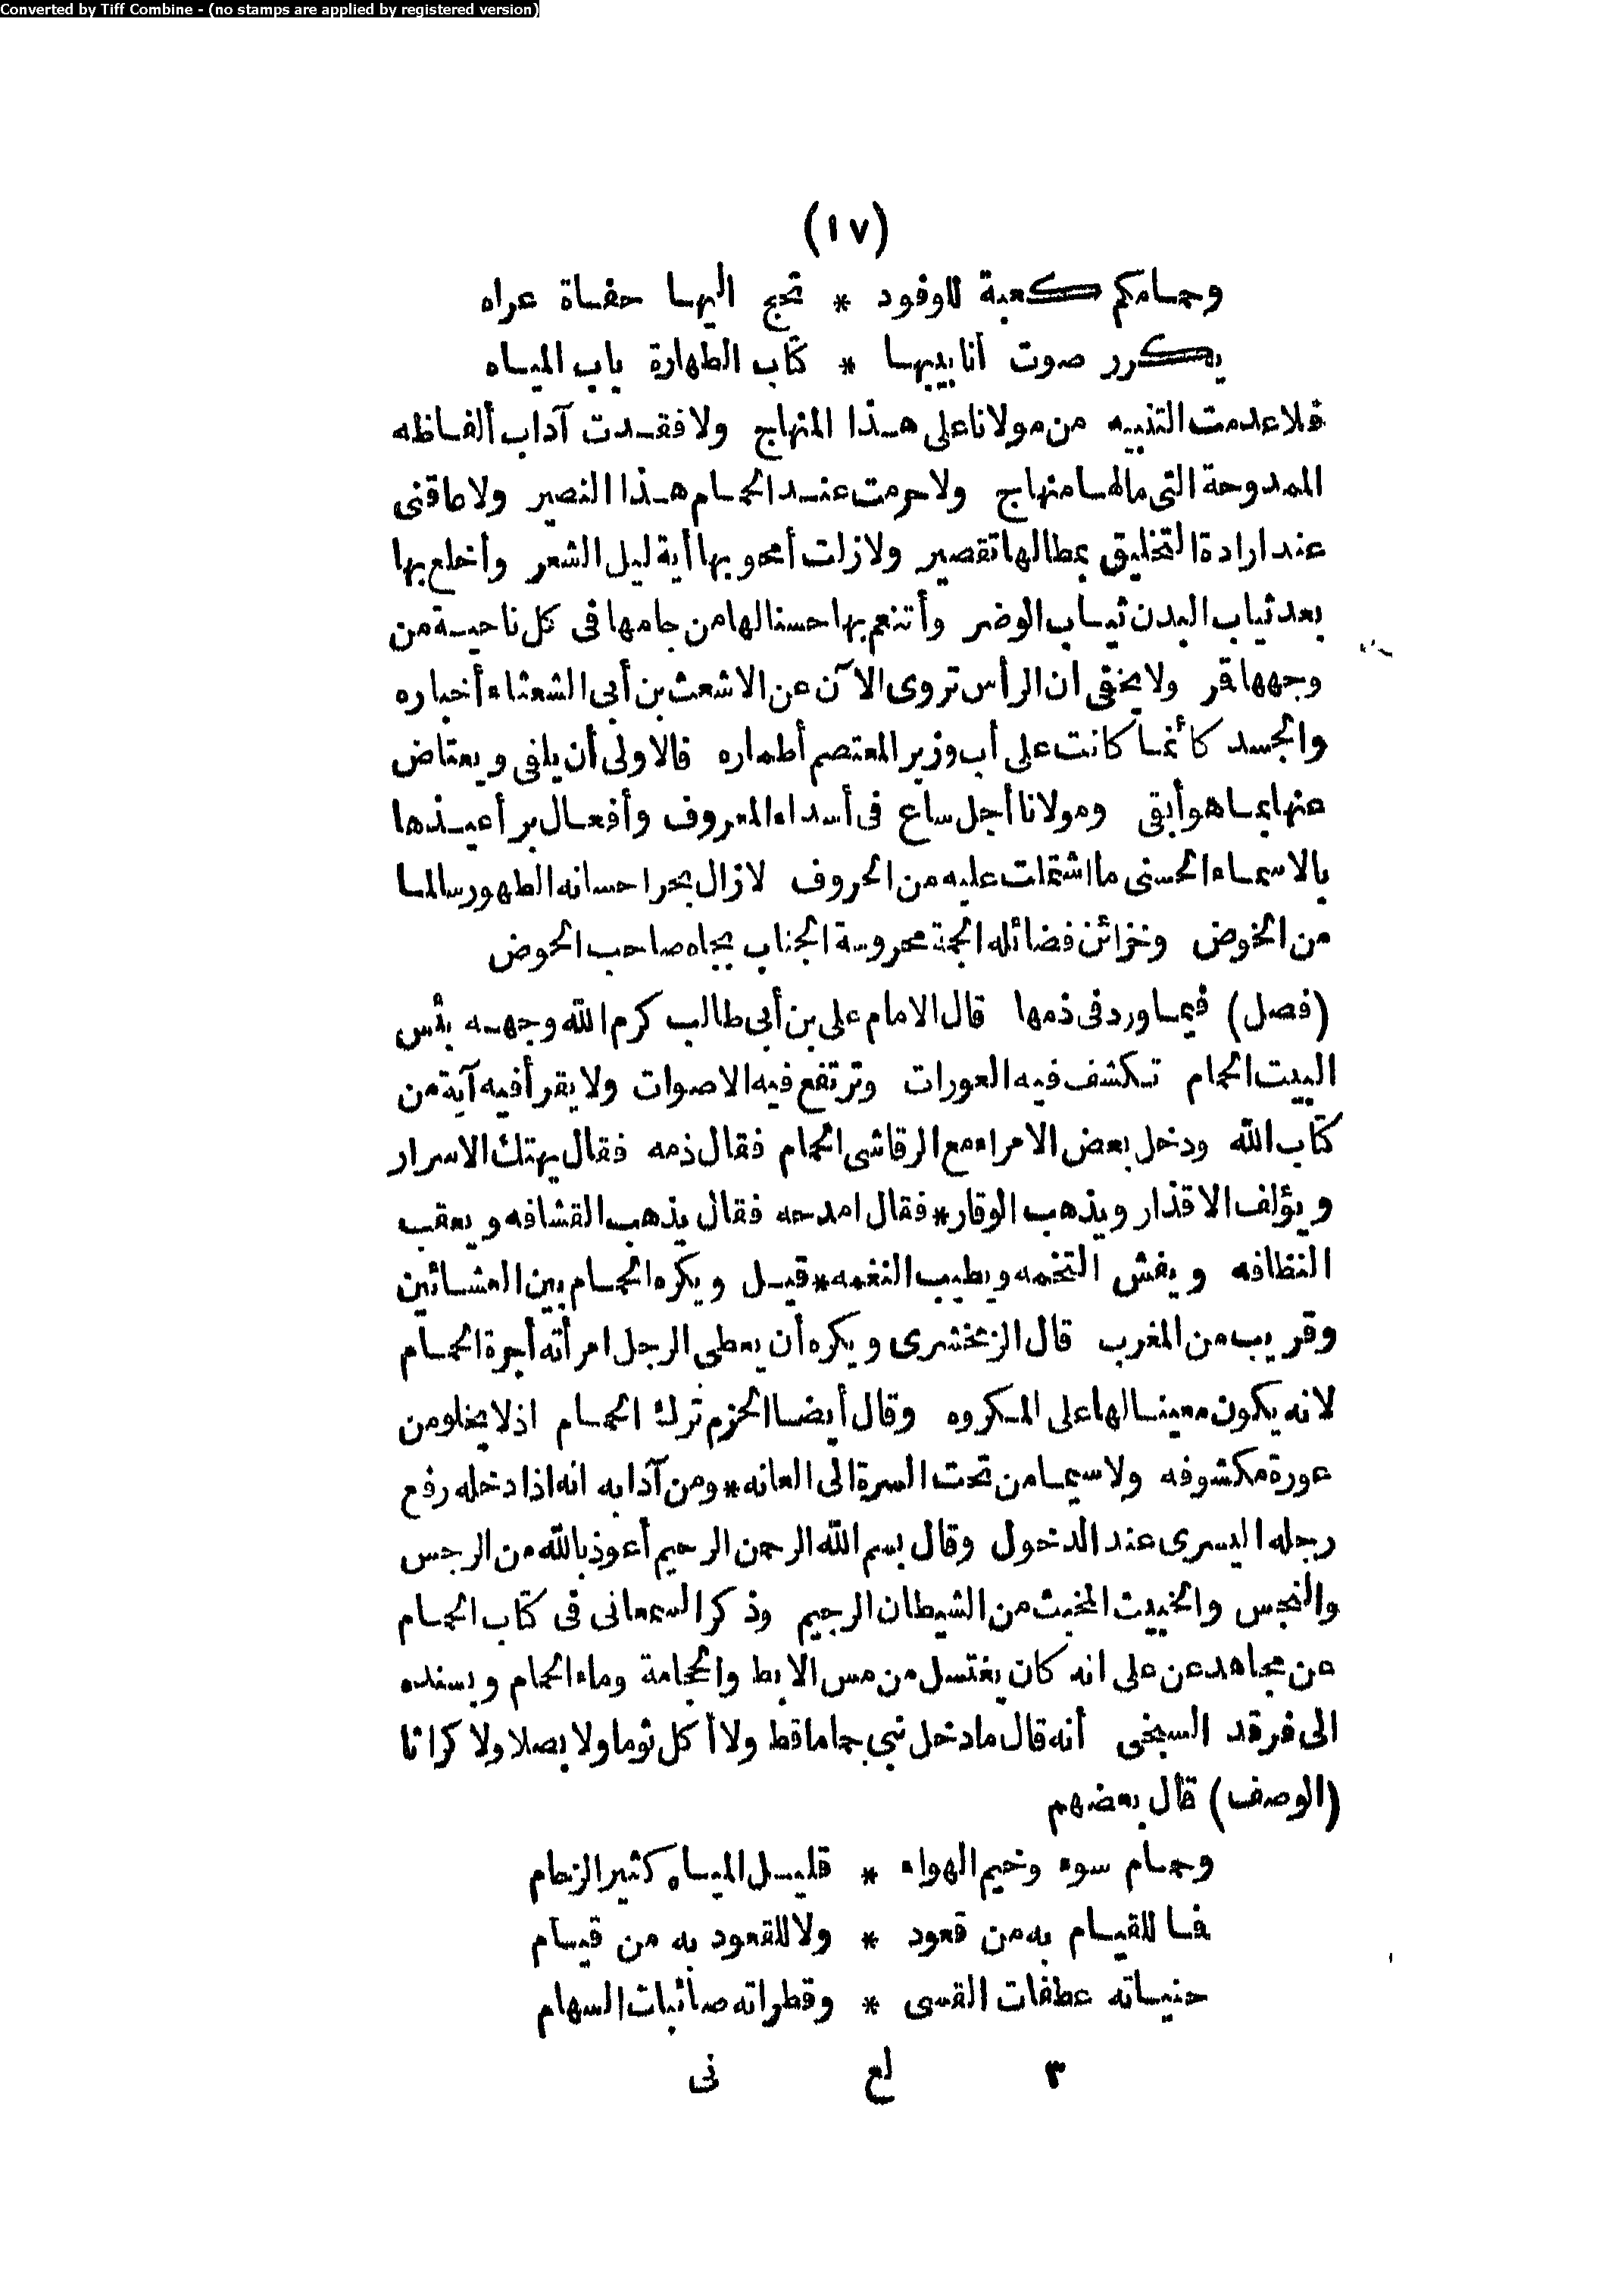 Converted by Tiff Combine - (no stamps are applied by registered version)
(١٧)
وحمامكم كعبة للوفود * تحج اليها حفاة عراه
يكرر صوت أنابيبها * كتاب الطهارة باب المياه
فلا عدمت التنبيه من مولانا على هذا المنهاج ولا فقدت آداب ألفاظه
الممدوحة التى مالها منهاج ولا حرمت عند الحمام هذا النصير ولا عاقنى
عند ارادة التخليق عطالها تقصير ولا زلت أمحو بها أية ليل الشعر وأخلع بها
بعد ثياب البدن ثياب الوضر وأتنعم بها حسنا لها من جامها فى كل ناحية من
وجهها قر ولا يخفى ان الرأس تروى الآن عن الاشعث بن أبى الشعثاء أخباره
والجسد كأنما كانت على أب وزير المعتصم أطماره فالاولى أن يلفى ويعتاض
عنها بما هو أبقى ومولانا أجل ساع فى أسداء المعروف وأفعال بر أعيذها
بالاسماء الحسنى ما اشتملت عليه من الحروف لا زال بحر احسانه الطهور سالما
من الخوض وخزائن فضائله الجمة محروسة الجناب بجاه صاحب الحوض
(فصل) فيما ورد فى ذمها قال الامام على بن أبى طالب كرم الله وجهه بئس
البيت الحمام تكشف فيه العورات وترتفع فيه الاصوات ولا يقرأ فيه آية من
كتاب الله ودخل بعض الامراء مع الرقاشى الحمام فقال ذمه فقال يهتك الاسرار
ويؤلف الاقذار ويذهب الوقار * فقال امدحه فقال يذهب القشافه ويعقب
النظافه ويفش التخمه ويطيب النغمه * قيل ويكره الحمام بين العشائين
وقريب من المغرب قال الزمخشرى ويكره أن يعطى الرجل امرأته أجرة الحمام
لانه يكون معينا لها على المكروه وقال أيضا الحزم ترك الحمام اذ لا يخلو من
عورة مكشوفه ولا سيما من تحت السرة الى العانه * ومن آدابه انه اذا دخله رفع
رجله اليسرى عند الدخول وقال بسم الله الرحمن الرحيم أعوذ بالله من الرجس
والنجس والخبيث المخبث من الشيطان الرجيم وذكر السمعانى فى كتاب الحمام
عن مجاهد عن على انه كان يغتسل من مس الابط والحجامة وماء الحمام وبسنده
الى فرقد السبخى أنه قال ما دخل نبى حماما قط ولا أكل ثوما ولا بصلا ولا كراثا
(الوصف) قال بعضهم
وحمام سوء وخيم الهواء * قليل المياه كثير الزحام
فما للقيام به من قعود * ولا للقعود به من قيام
حنياته عطفات القسى * وقطراته صائبات السهام
٣ لع نى